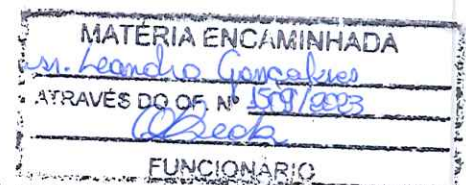 MATÉRIA ENCAMINHADA
Sr. Leandro Gonçalves
ATRAVÉS DO OF. Nº 1509/2023
FUNCIONÁRIO